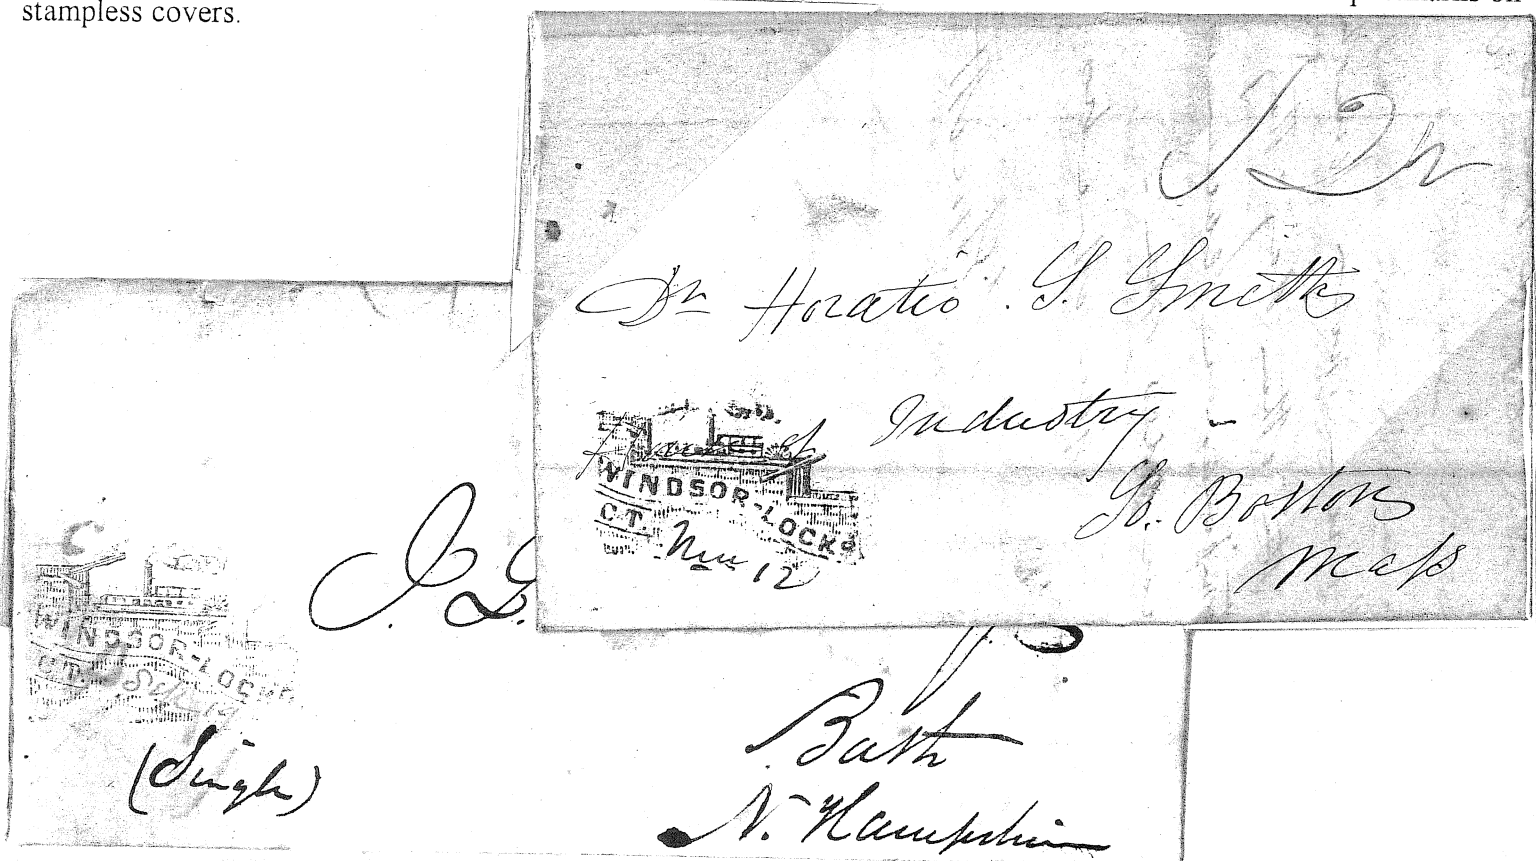 stampless covers.
on
Dr Horatio S. Smith
House of Industry -
So. Boston
Mass
WINDSOR-LOCKS
C.T.
Nov 12
J. G.
WINDSOR-LOCKS
C.T.
(Single)
Bath
N. Hampshire